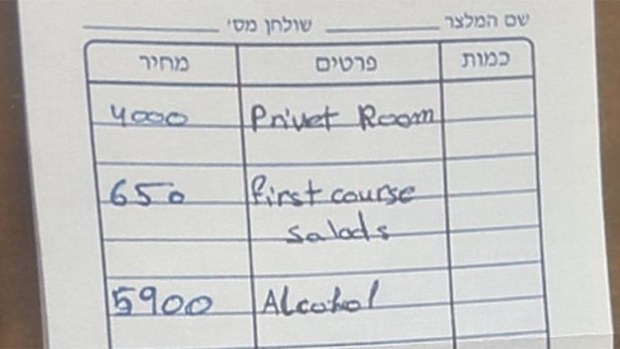 שם המלצר ________ שולחן מס׳ ________
כמות פרטים מחיר
Privet Room 4000
first course 650
salads
Alcohol 5900